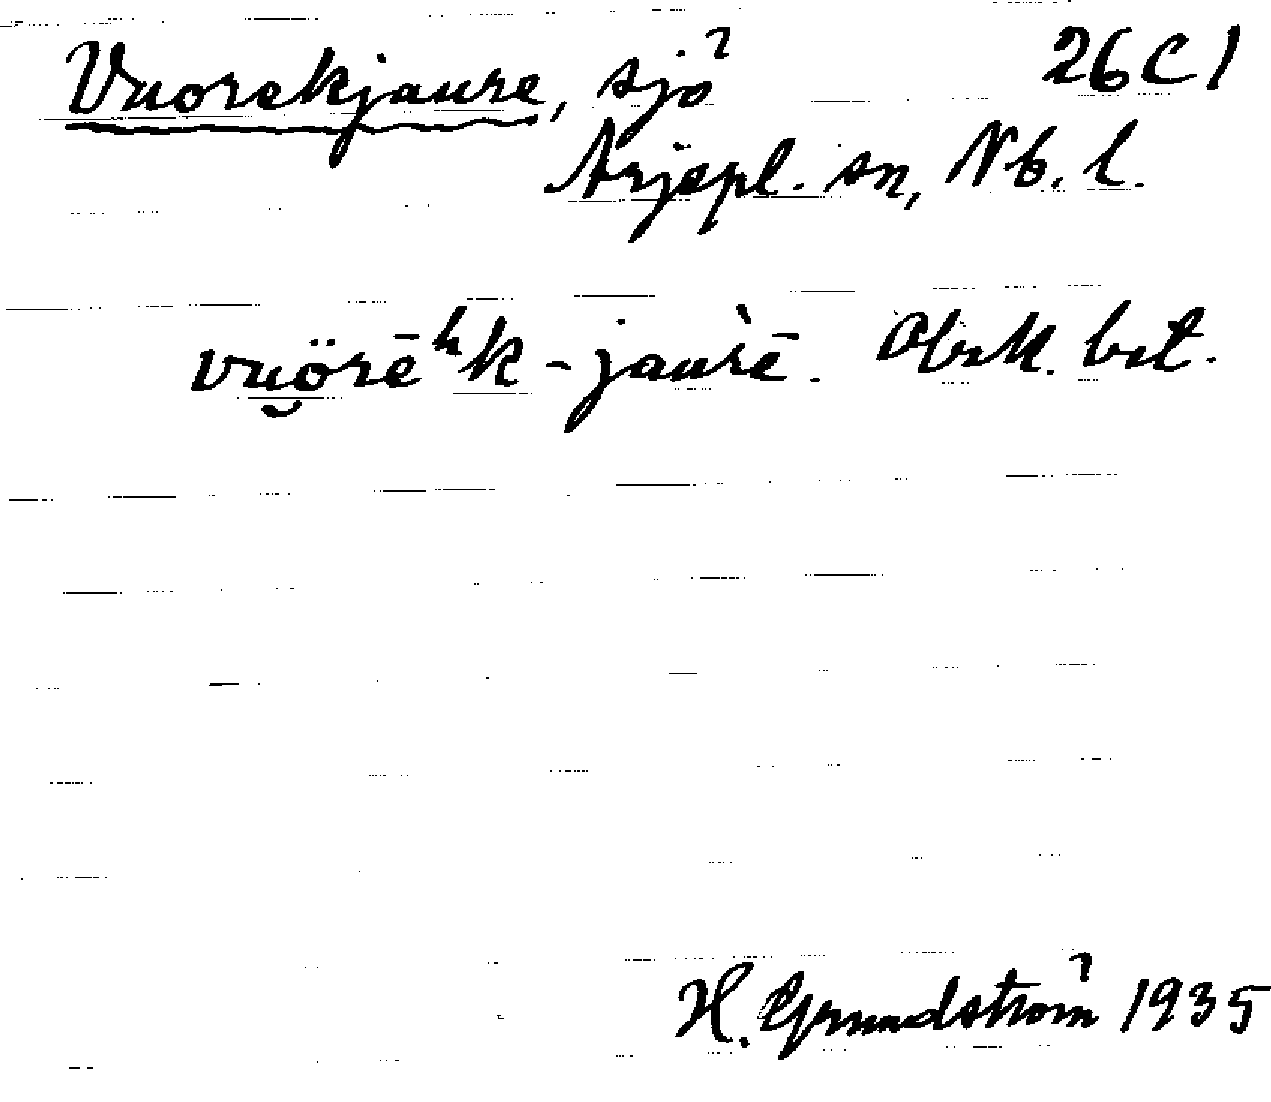 Vuorekjaure, sjö 26 C 1
Arjepl. sn, Nb. l.
vuö̯rēʰk-jaùrē. Obek. bet.
H. Grundström 1935